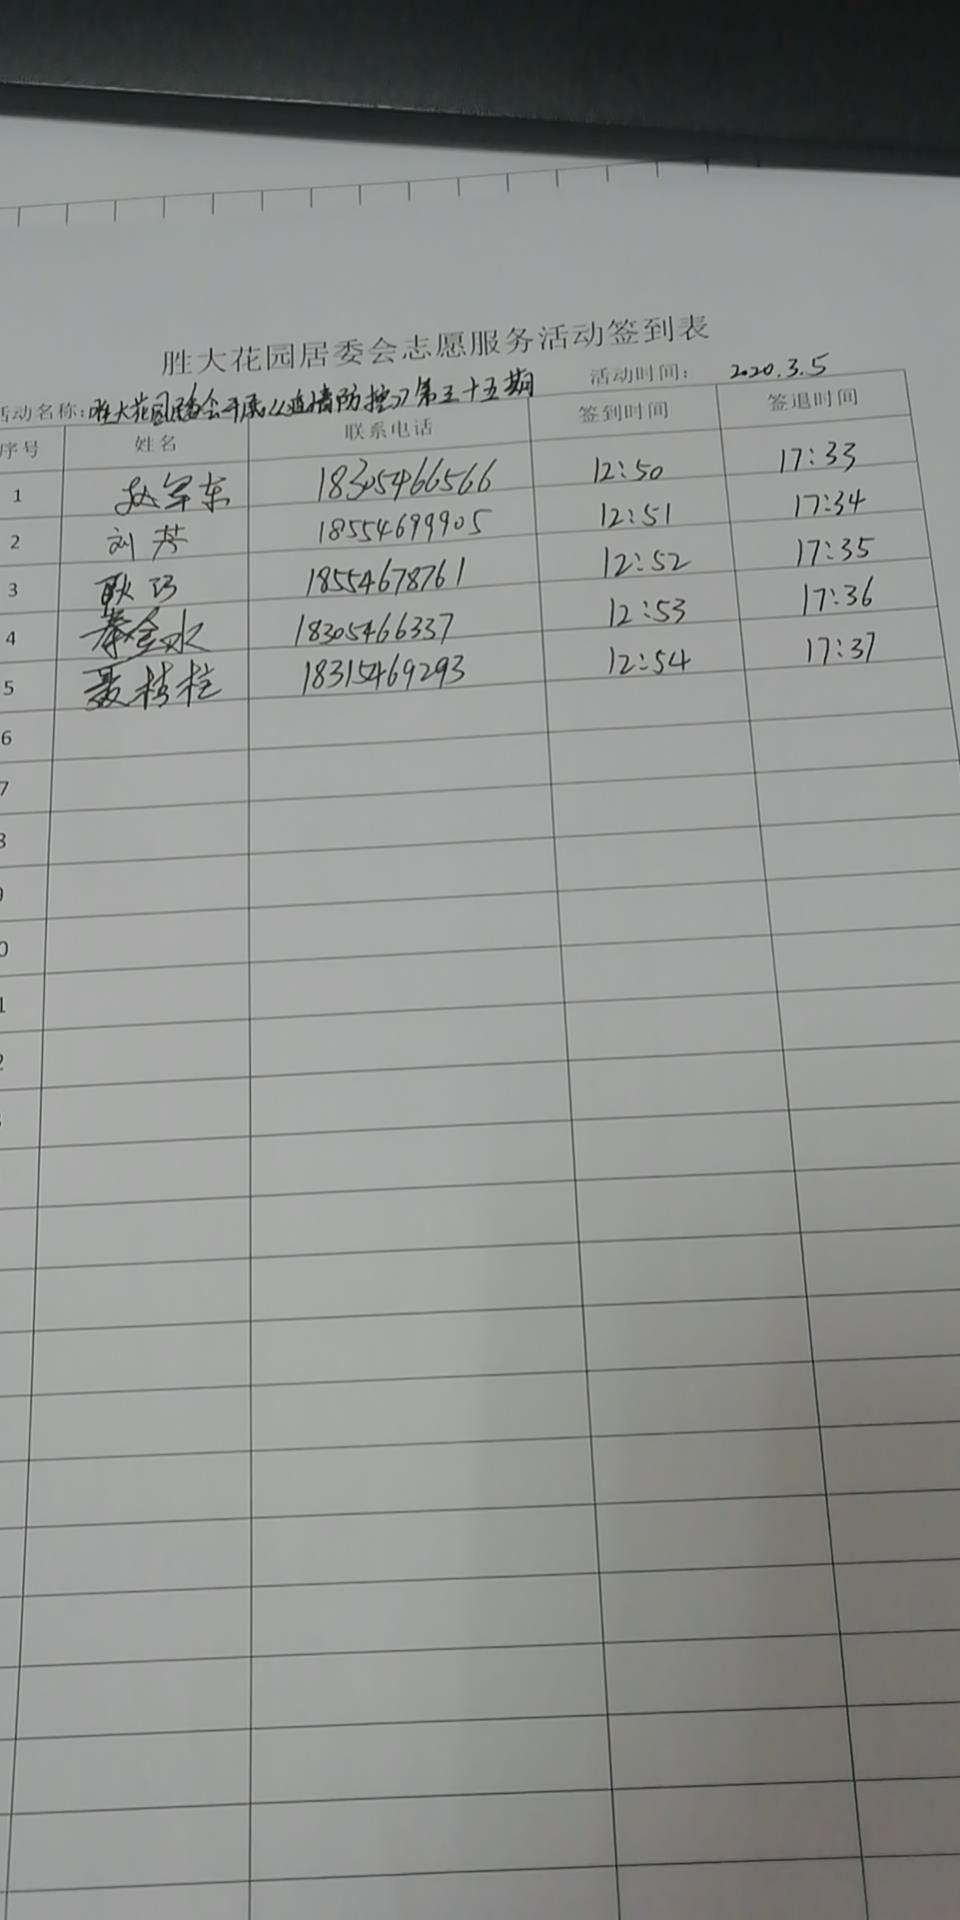 胜大花园居委会志愿服务活动签到表
活动名称：胜大花园居委会开展《疫情防控》第三十五期 活动时间： 2020.3.5
序号 姓名 联系电话 签到时间 签退时间
1 赵军东 18305466566 12:50 17:33
2 刘芳 18554699905 12:51 17:34
3 耿巧 18554678761 12:52 17:35
4 秦金水 18305466337 12:53 17:36
5 聂桂柱 18315469293 12:54 17:37
6
7
8
9
0
1
2